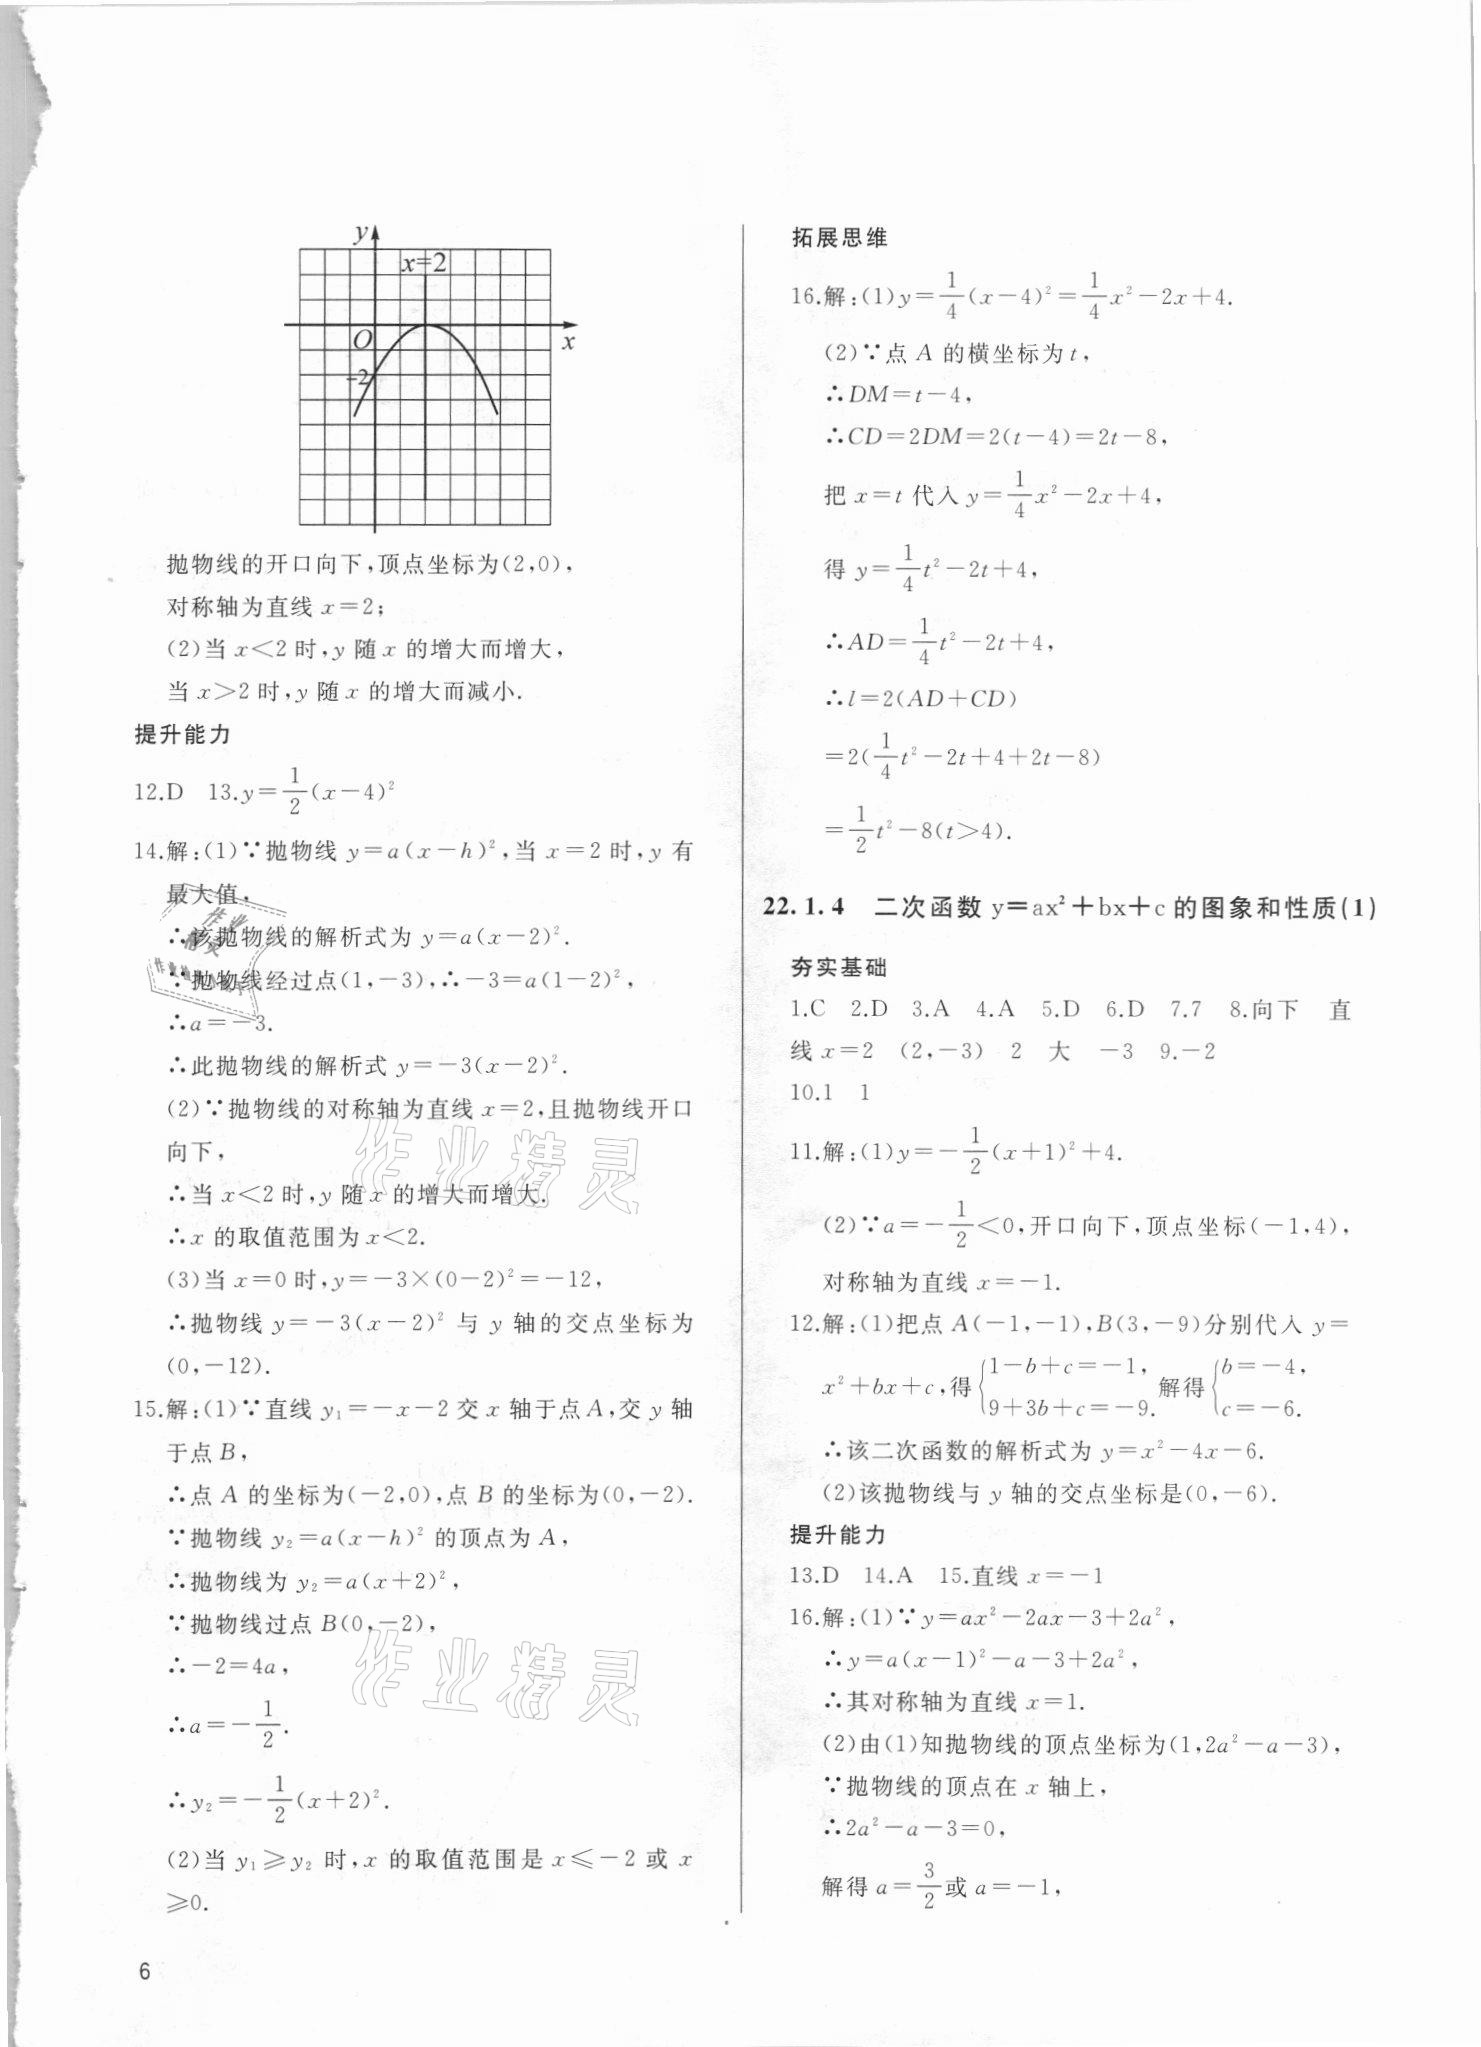 y
x=2
O
x
-2
抛物线的开口向下,顶点坐标为(2,0),
对称轴为直线 x=2;
(2)当 x<2 时,y 随 x 的增大而增大,
当 x>2 时,y 随 x 的增大而减小.
提升能力
12.D 13.y=1/2(x-4)²
14.解:(1)∵抛物线 y=a(x-h)²,当 x=2 时,y 有
最大值,
∴该抛物线的解析式为 y=a(x-2)².
∵抛物线经过点(1,-3),∴-3=a(1-2)²,
∴a=-3.
∴此抛物线的解析式 y=-3(x-2)².
(2)∵抛物线的对称轴为直线 x=2,且抛物线开口
向下,
∴当 x<2 时,y 随 x 的增大而增大.
∴x 的取值范围为 x<2.
(3)当 x=0 时,y=-3×(0-2)²=-12,
∴抛物线 y=-3(x-2)² 与 y 轴的交点坐标为
(0,-12).
15.解:(1)∵直线 y₁=-x-2 交 x 轴于点 A,交 y 轴
于点 B,
∴点 A 的坐标为(-2,0),点 B 的坐标为(0,-2).
∵抛物线 y₂=a(x-h)² 的顶点为 A,
∴抛物线为 y₂=a(x+2)²,
∵抛物线过点 B(0,-2),
∴-2=4a,
∴a=-1/2.
∴y₂=-1/2(x+2)².
(2)当 y₁≥y₂ 时,x 的取值范围是 x≤-2 或 x
≥0.
6
拓展思维
16.解:(1)y=1/4(x-4)²=1/4x²-2x+4.
(2)∵点 A 的横坐标为 t,
∴DM=t-4,
∴CD=2DM=2(t-4)=2t-8,
把 x=t 代入 y=1/4x²-2x+4,
得 y=1/4t²-2t+4,
∴AD=1/4t²-2t+4,
∴l=2(AD+CD)
=2(1/4t²-2t+4+2t-8)
=1/2t²-8(t>4).
22.1.4 二次函数 y=ax²+bx+c 的图象和性质(1)
夯实基础
1.C 2.D 3.A 4.A 5.D 6.D 7.7 8.向下 直
线 x=2 (2,-3) 2 大 -3 9.-2
10.1 1
11.解:(1)y=-1/2(x+1)²+4.
(2)∵a=-1/2<0,开口向下,顶点坐标(-1,4),
对称轴为直线 x=-1.
12.解:(1)把点 A(-1,-1),B(3,-9)分别代入 y=
x²+bx+c,得{1-b+c=-1, 9+3b+c=-9. 解得{b=-4, c=-6.
∴该二次函数的解析式为 y=x²-4x-6.
(2)该抛物线与 y 轴的交点坐标是(0,-6).
提升能力
13.D 14.A 15.直线 x=-1
16.解:(1)∵y=ax²-2ax-3+2a²,
∴y=a(x-1)²-a-3+2a²,
∴其对称轴为直线 x=1.
(2)由(1)知抛物线的顶点坐标为(1,2a²-a-3),
∵抛物线的顶点在 x 轴上,
∴2a²-a-3=0,
解得 a=3/2或 a=-1,
作业精灵
作业精灵
作业
精灵